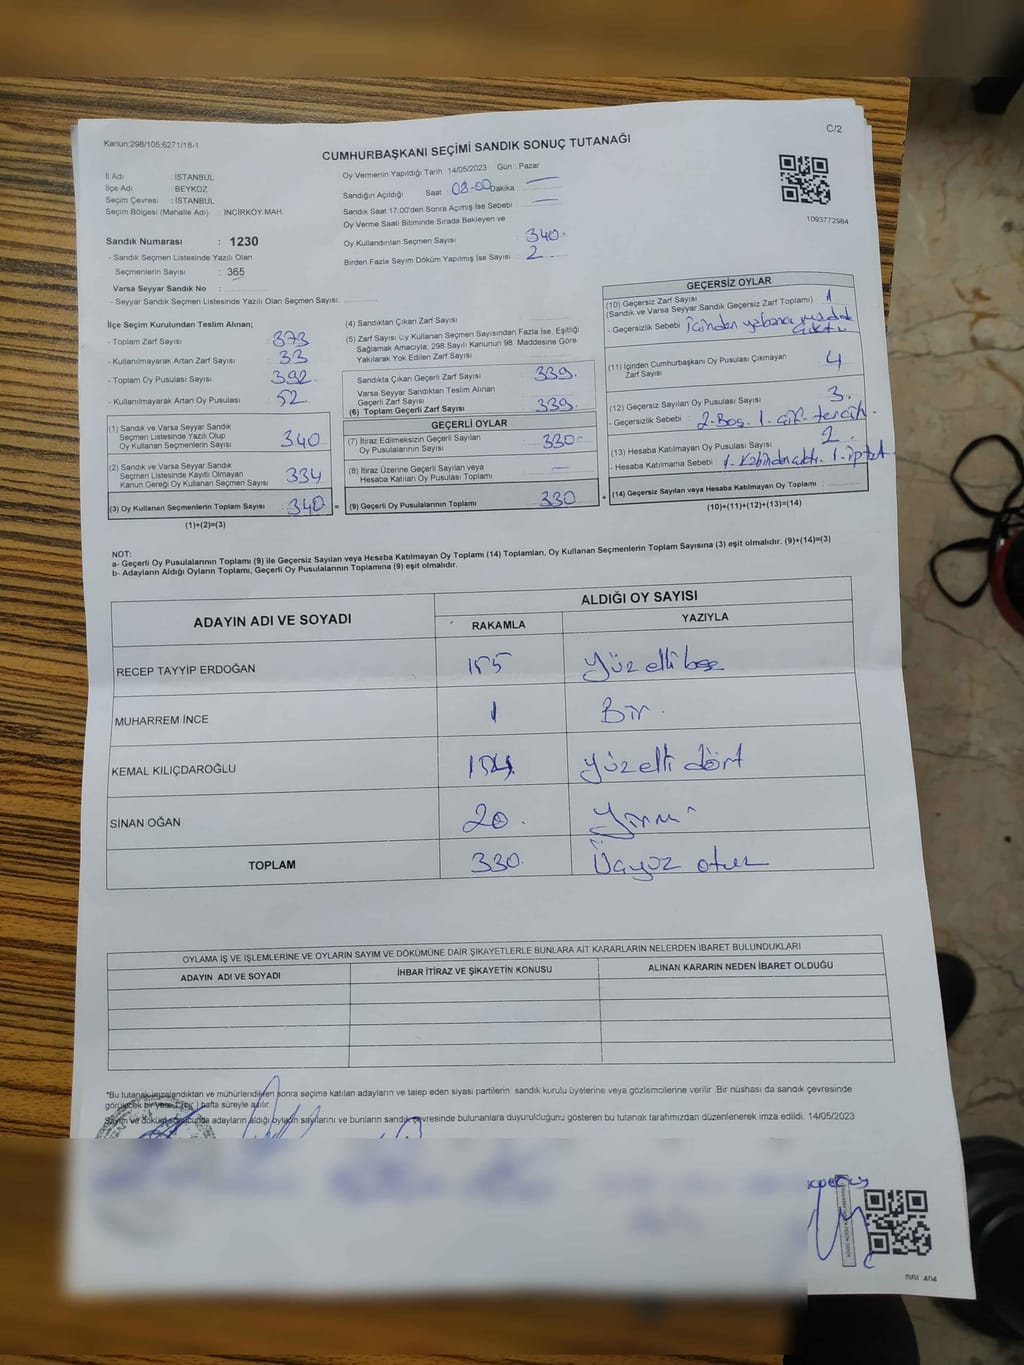 Kanun;298/105;6271/18-1
C/2
CUMHURBAŞKANI SEÇİMİ SANDIK SONUÇ TUTANAĞI
İl Adı : İSTANBUL
İlçe Adı : BEYKOZ
Seçim Çevresi : İSTANBUL
Seçim Bölgesi (Mahalle Adı) : İNCİRKÖY MAH.
Sandık Numarası : 1230
- Sandık Seçmen Listesinde Yazılı Olan
Seçmenlerin Sayısı : 365
Varsa Seyyar Sandık No :
- Seyyar Sandık Seçmen Listesinde Yazılı Olan Seçmen Sayısı:
Oy Vermenin Yapıldığı Tarih :14/05/2023 Gün : Pazar
Sandığın Açıldığı Saat : 08-00 Dakika :
Sandık Saat 17:00'den Sonra Açımış İse Sebebi
Oy Verme Saati Bitiminde Sırada Bekleyen ve
Oy Kullandırılan Seçmen Sayısı : 340.
Birden Fazla Sayım Döküm Yapılmış İse Sayısı : 2
1093772984
İlçe Seçim Kurulundan Teslim Alınan;
- Toplam Zarf Sayısı : 373
- Kullanılmayarak Artan Zarf Sayısı : 33
- Toplam Oy Pusulası Sayısı : 392.
- Kullanılmayarak Artan Oy Pusulası : 52.
(1) Sandık ve Varsa Seyyar Sandık
Seçmen Listesinde Yazılı Olup
Oy Kullanan Seçmenlerin Sayısı : 340
(2) Sandık ve Varsa Seyyar Sandık
Seçmen Listesinde Kayıtlı Olmayan
Kanun Gereği Oy Kullanan Seçmen Sayısı : 334
(3) Oy Kullanan Seçmenlerin Toplam Sayısı : 340. =
(1)+(2)=(3)
(4) Sandıktan Çıkan Zarf Sayısı :
(5) Zarf Sayısı Oy Kullanan Seçmen Sayısından Fazla İse, Eşitliği
Sağlamak Amacıyla, 298 Sayılı Kanunun 98. Maddesine Göre
Yakılarak Yok Edilen Zarf Sayısı :
Sandıkta Çıkan Geçerli Zarf Sayısı : 339.
Varsa Seyyar Sandıktan Teslim Alınan
Geçerli Zarf Sayısı :
(6) Toplam Geçerli Zarf Sayısı : 339.
GEÇERLİ OYLAR
(7) İtiraz Edilmeksizin Geçerli Sayılan
Oy Pusulalarının Sayısı : 330-
(8) İtiraz Üzerine Geçerli Sayılan veya
Hesaba Katılan Oy Pusulası Toplamı : —
(9) Geçerli Oy Pusulalarının Toplamı : 330 +
GEÇERSİZ OYLAR
(10) Geçersiz Zarf Sayısı : 1
(Sandık ve Varsa Seyyar Sandık Geçersiz Zarf Toplamı)
- Geçersizlik Sebebi : içinden yabancı
çıktı
(11) İçinden Cumhurbaşkanı Oy Pusulası Çıkmayan
Zarf Sayısı : 4
(12) Geçersiz Sayılan Oy Pusulası Sayısı : 3.
- Geçersizlik Sebebi : 2-Boş. 1. çift-tercih.
(13) Hesaba Katılmayan Oy Pusulası Sayısı : 2.
- Hesaba Katılmama Sebebi :
(14) Geçersiz Sayılan veya Hesaba Katılmayan Oy Toplamı :
(10)+(11)+(12)+(13)=(14)
NOT:
a- Geçerli Oy Pusulalarının Toplamı (9) ile Geçersiz Sayılan veya Hesaba Katılmayan Oy Toplamı (14) Toplamları, Oy Kullanan Seçmenlerin Toplam Sayısına (3) eşit olmalıdır. (9)+(14)=(3)
b- Adayların Aldığı Oyların Toplamı, Geçerli Oy Pusulalarının Toplamına (9) eşit olmalıdır.
ADAYIN ADI VE SOYADI ALDIĞI OY SAYISI
RAKAMLA YAZIYLA
RECEP TAYYİP ERDOĞAN 155 Yüz elli beş
MUHARREM İNCE 1 Bir.
KEMAL KILIÇDAROĞLU 154 Yüz elli dört
SİNAN OĞAN 20. Yirmi
TOPLAM 330. Üçyüz otuz
OYLAMA İŞ VE İŞLEMLERİNE VE OYLARIN SAYIM VE DÖKÜMÜNE DAİR ŞİKAYETLERLE BUNLARA AİT KARARLARIN NELERDEN İBARET BULUNDUKLARI
ADAYIN ADI VE SOYADI İHBAR İTİRAZ VE ŞİKAYETİN KONUSU ALINAN KARARIN NEDEN İBARET OLDUĞU
*Bu tutanak imzalandıktan ve mühürlendikten sonra seçime katılan adayların ve talep eden siyasi partilerin sandık kurulu üyelerine veya gözlemcilerine verilir .Bir nüshası da sandık çevresinde
görülecek bir yere 1 (bir ) hafta süreyle asılır.
Sayım ve döküm sonucunda adayların aldığı oyların sayılarını ve bunların sandık çevresinde bulunanlara duyurulduğunu gösteren bu tutanak tarafımızdan düzenlenerek imza edildi. 14/05/2023